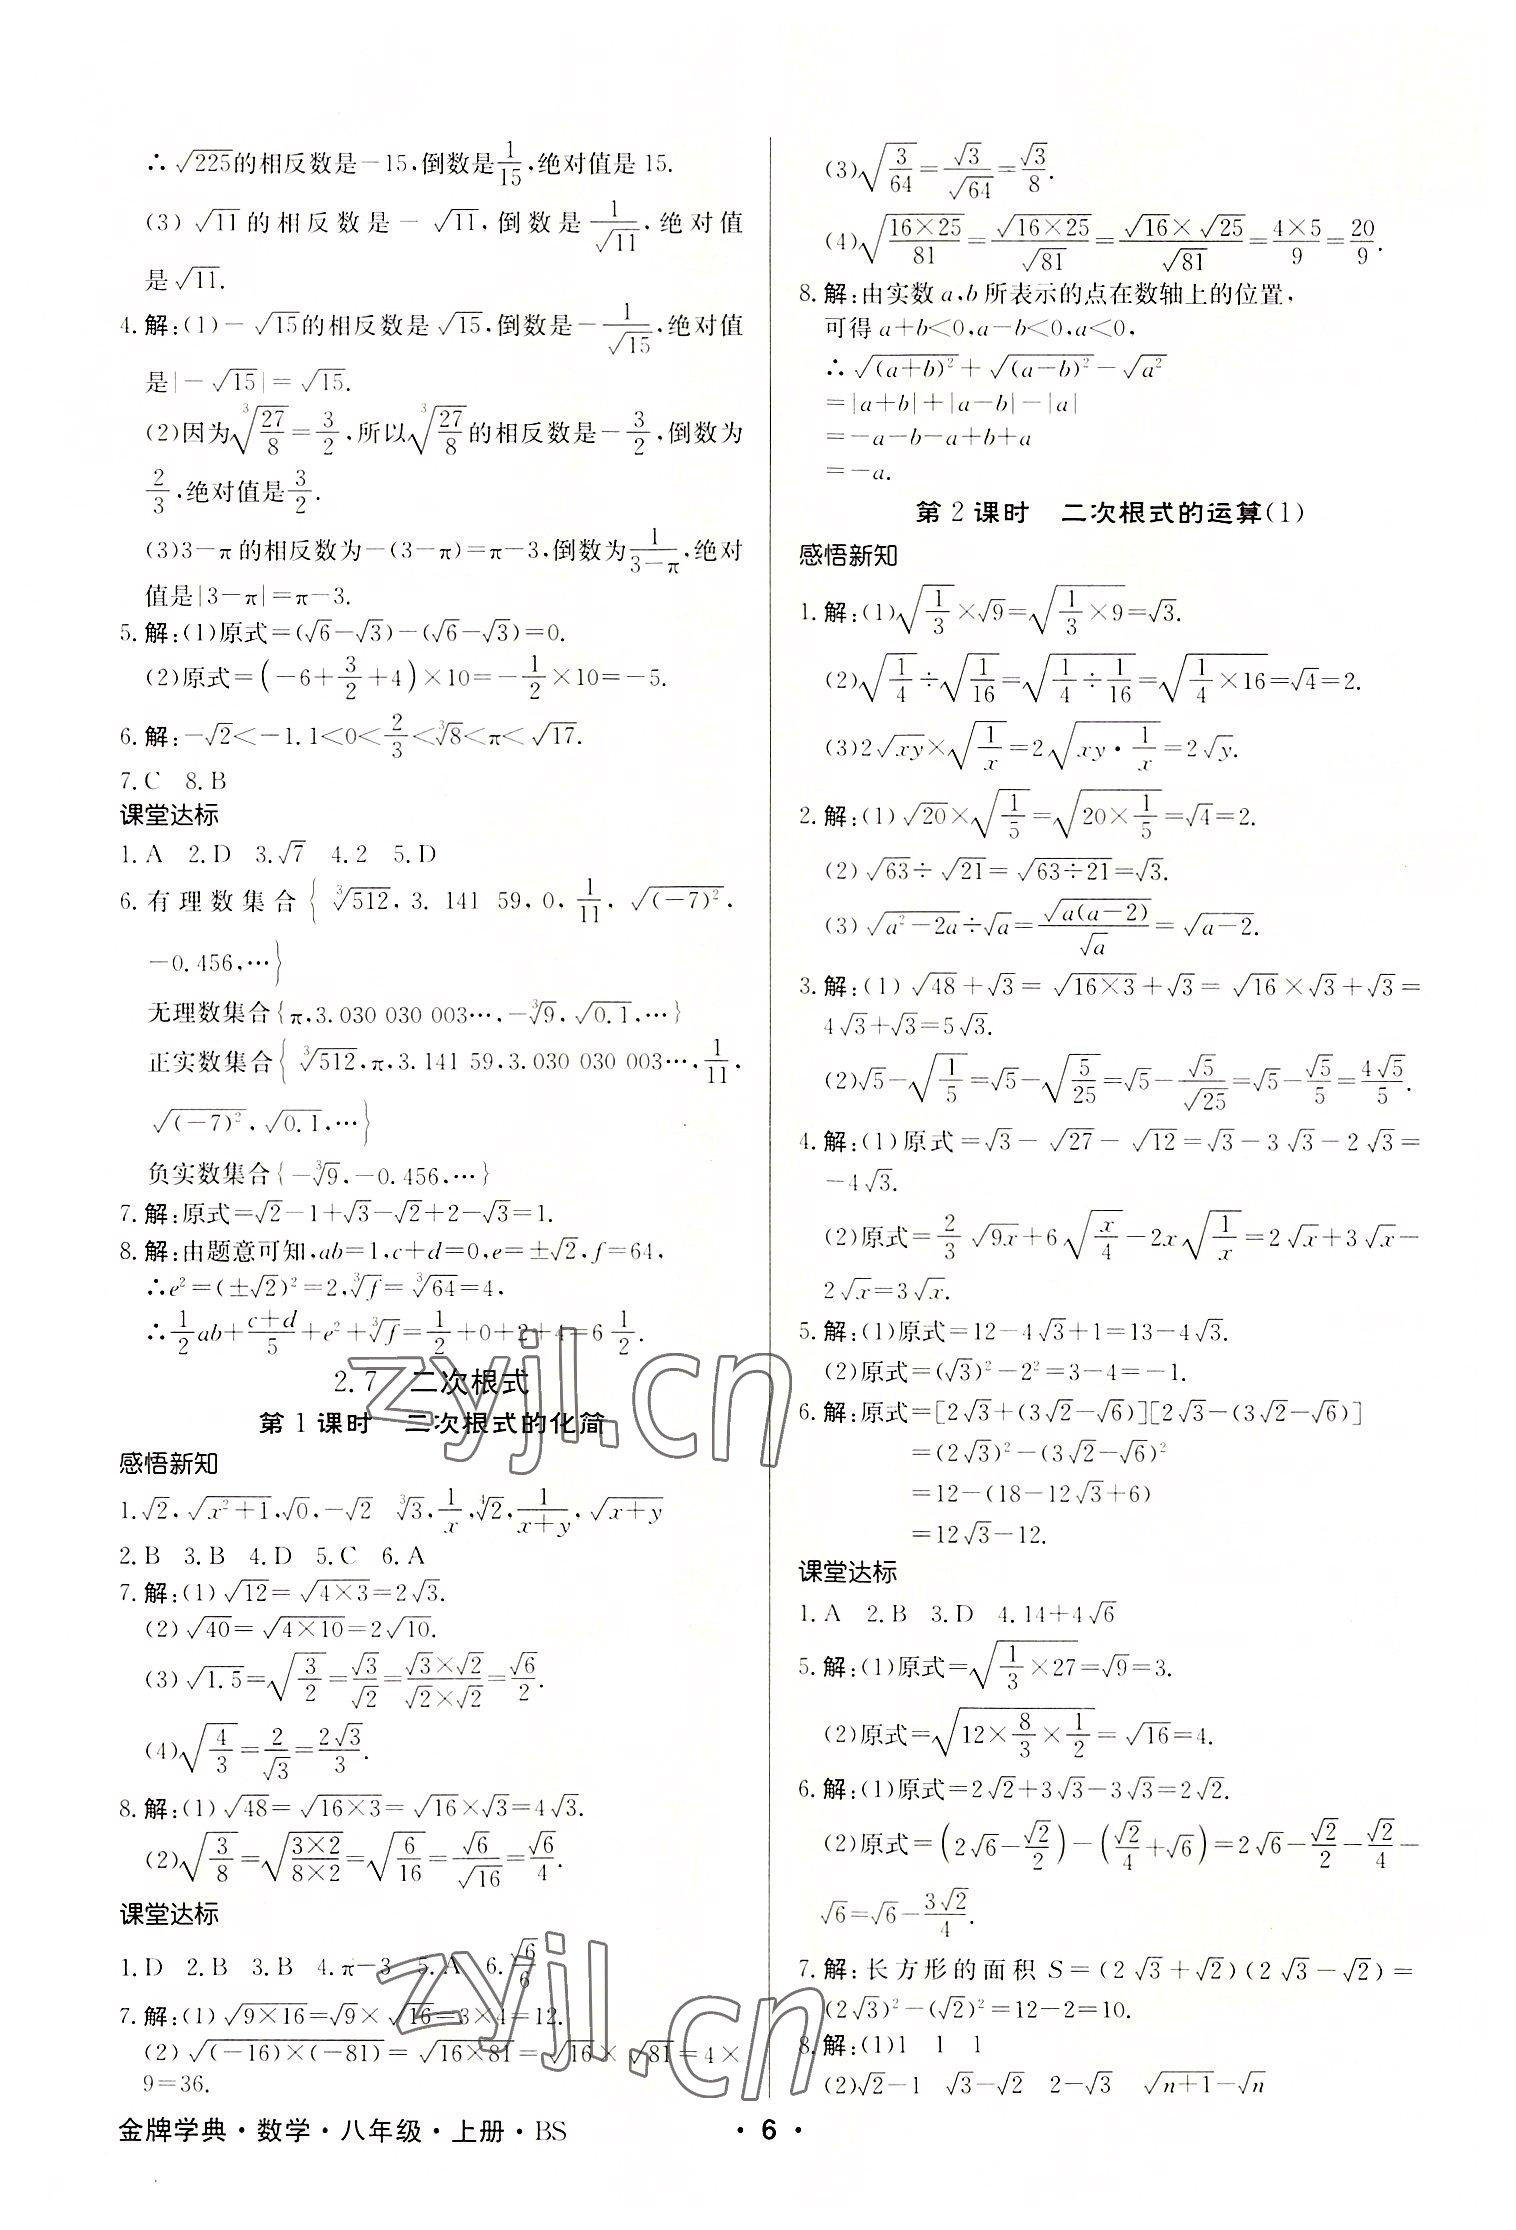 ∴√225的相反数是-15,倒数是1/15,绝对值是15.
(3)√11的相反数是-√11,倒数是1/√11,绝对值
是√11.
4.解:(1)-√15的相反数是√15,倒数是-1/√15,绝对值
是|-√15|=√15.
(2)因为∛(27/8)=3/2,所以∛(27/8)的相反数是-3/2,倒数为
2/3,绝对值是3/2.
(3)3-π的相反数为-(3-π)=π-3,倒数为1/(3-π),绝对
值是|3-π|=π-3.
5.解:(1)原式=(√6-√3)-(√6-√3)=0.
(2)原式=(-6+3/2+4)×10=-1/2×10=-5.
6.解:-√2<-1.1<0<2/3<∛8<π<√17.
7.C 8.B
课堂达标
1.A 2.D 3.√7 4.2 5.D
6.有理数集合{∛512,3.141 59,0,1/11,√(-7)²,
-0.456,…}
无理数集合{π,3.030 030 003…,-∛9,√0.1,…}
正实数集合{∛512,π,3.141 59,3.030 030 003…,1/11,
√(-7)²,√0.1,…}
负实数集合{-∛9,-0.456,…}
7.解:原式=√2-1+√3-√2+2-√3=1.
8.解:由题意可知,ab=1,c+d=0,e=±√2,f=64,
∴e²=(±√2)²=2,∛f=∛64=4,
∴1/2ab+(c+d)/5+e²+∛f=1/2+0+2+4=6 1/2.
2.7 二次根式
第1课时 二次根式的化简
感悟新知
1.√2,√(x²+1),√0,-√2 ∛3,1/x,∜2,1/(x+y),√(x+y)
2.B 3.B 4.D 5.C 6.A
7.解:(1)√12=√(4×3)=2√3.
(2)√40=√(4×10)=2√10.
(3)√1.5=√(3/2)=√3/√2=(√3×√2)/(√2×√2)=√6/2.
(4)√(4/3)=2/√3=2√3/3.
8.解:(1)√48=√(16×3)=√16×√3=4√3.
(2)√(3/8)=√((3×2)/(8×2))=√(6/16)=√6/√16=√6/4.
课堂达标
1.D 2.B 3.B 4.π-3 5.A 6.√6/6
7.解:(1)√(9×16)=√9×√16=3×4=12.
(2)√((-16)×(-81))=√(16×81)=√16×√81=4×
9=36.
(3)√(3/64)=√3/√64=√3/8.
(4)√((16×25)/81)=√(16×25)/√81=(√16×√25)/√81=(4×5)/9=20/9.
8.解:由实数a,b所表示的点在数轴上的位置,
可得a+b<0,a-b<0,a<0,
∴√(a+b)²+√(a-b)²-√a²
=|a+b|+|a-b|-|a|
=-a-b-a+b+a
=-a.
第2课时 二次根式的运算(1)
感悟新知
1.解:(1)√(1/3)×√9=√(1/3×9)=√3.
(2)√(1/4)÷√(1/16)=√(1/4÷1/16)=√(1/4×16)=√4=2.
(3)2√(xy)×√(1/x)=2√(xy·1/x)=2√y.
2.解:(1)√20×√(1/5)=√(20×1/5)=√4=2.
(2)√63÷√21=√(63÷21)=√3.
(3)√(a²-2a)÷√a=√(a(a-2))/√a=√(a-2).
3.解:(1)√48+√3=√(16×3)+√3=√16×√3+√3=
4√3+√3=5√3.
(2)√5-√(1/5)=√5-√(5/25)=√5-√5/√25=√5-√5/5=4√5/5.
4.解:(1)原式=√3-√27-√12=√3-3√3-2√3=
-4√3.
(2)原式=2/3√(9x)+6√(x/4)-2x√(1/x)=2√x+3√x-
2√x=3√x.
5.解:(1)原式=12-4√3+1=13-4√3.
(2)原式=(√3)²-2²=3-4=-1.
6.解:原式=[2√3+(3√2-√6)][2√3-(3√2-√6)]
=(2√3)²-(3√2-√6)²
=12-(18-12√3+6)
=12√3-12.
课堂达标
1.A 2.B 3.D 4.14+4√6
5.解:(1)原式=√(1/3×27)=√9=3.
(2)原式=√(12×8/3×1/2)=√16=4.
6.解:(1)原式=2√2+3√3-3√3=2√2.
(2)原式=(2√6-√2/2)-(√2/4+√6)=2√6-√2/2-√2/4-
√6=√6-3√2/4.
7.解:长方形的面积S=(2√3+√2)(2√3-√2)=
(2√3)²-(√2)²=12-2=10.
8.解:(1)1 1 1
(2)√2-1 √3-√2 2-√3 √(n+1)-√n
金牌学典·数学·八年级·上册·BS
·6·
zyjl.cn
zyjl.cn